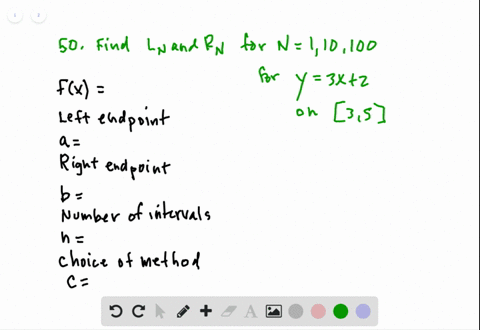 50. Find LN and RN for N = 1, 10, 100
for y = 3x+2
on [3,5]
f(x) =
Left endpoint
a =
Right endpoint
b =
Number of intervals
n =
Choice of method
c =